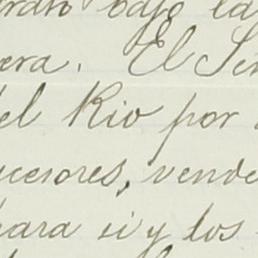 bajo la
era. El Señ
del Rio por
ucesores, vende
para si y los